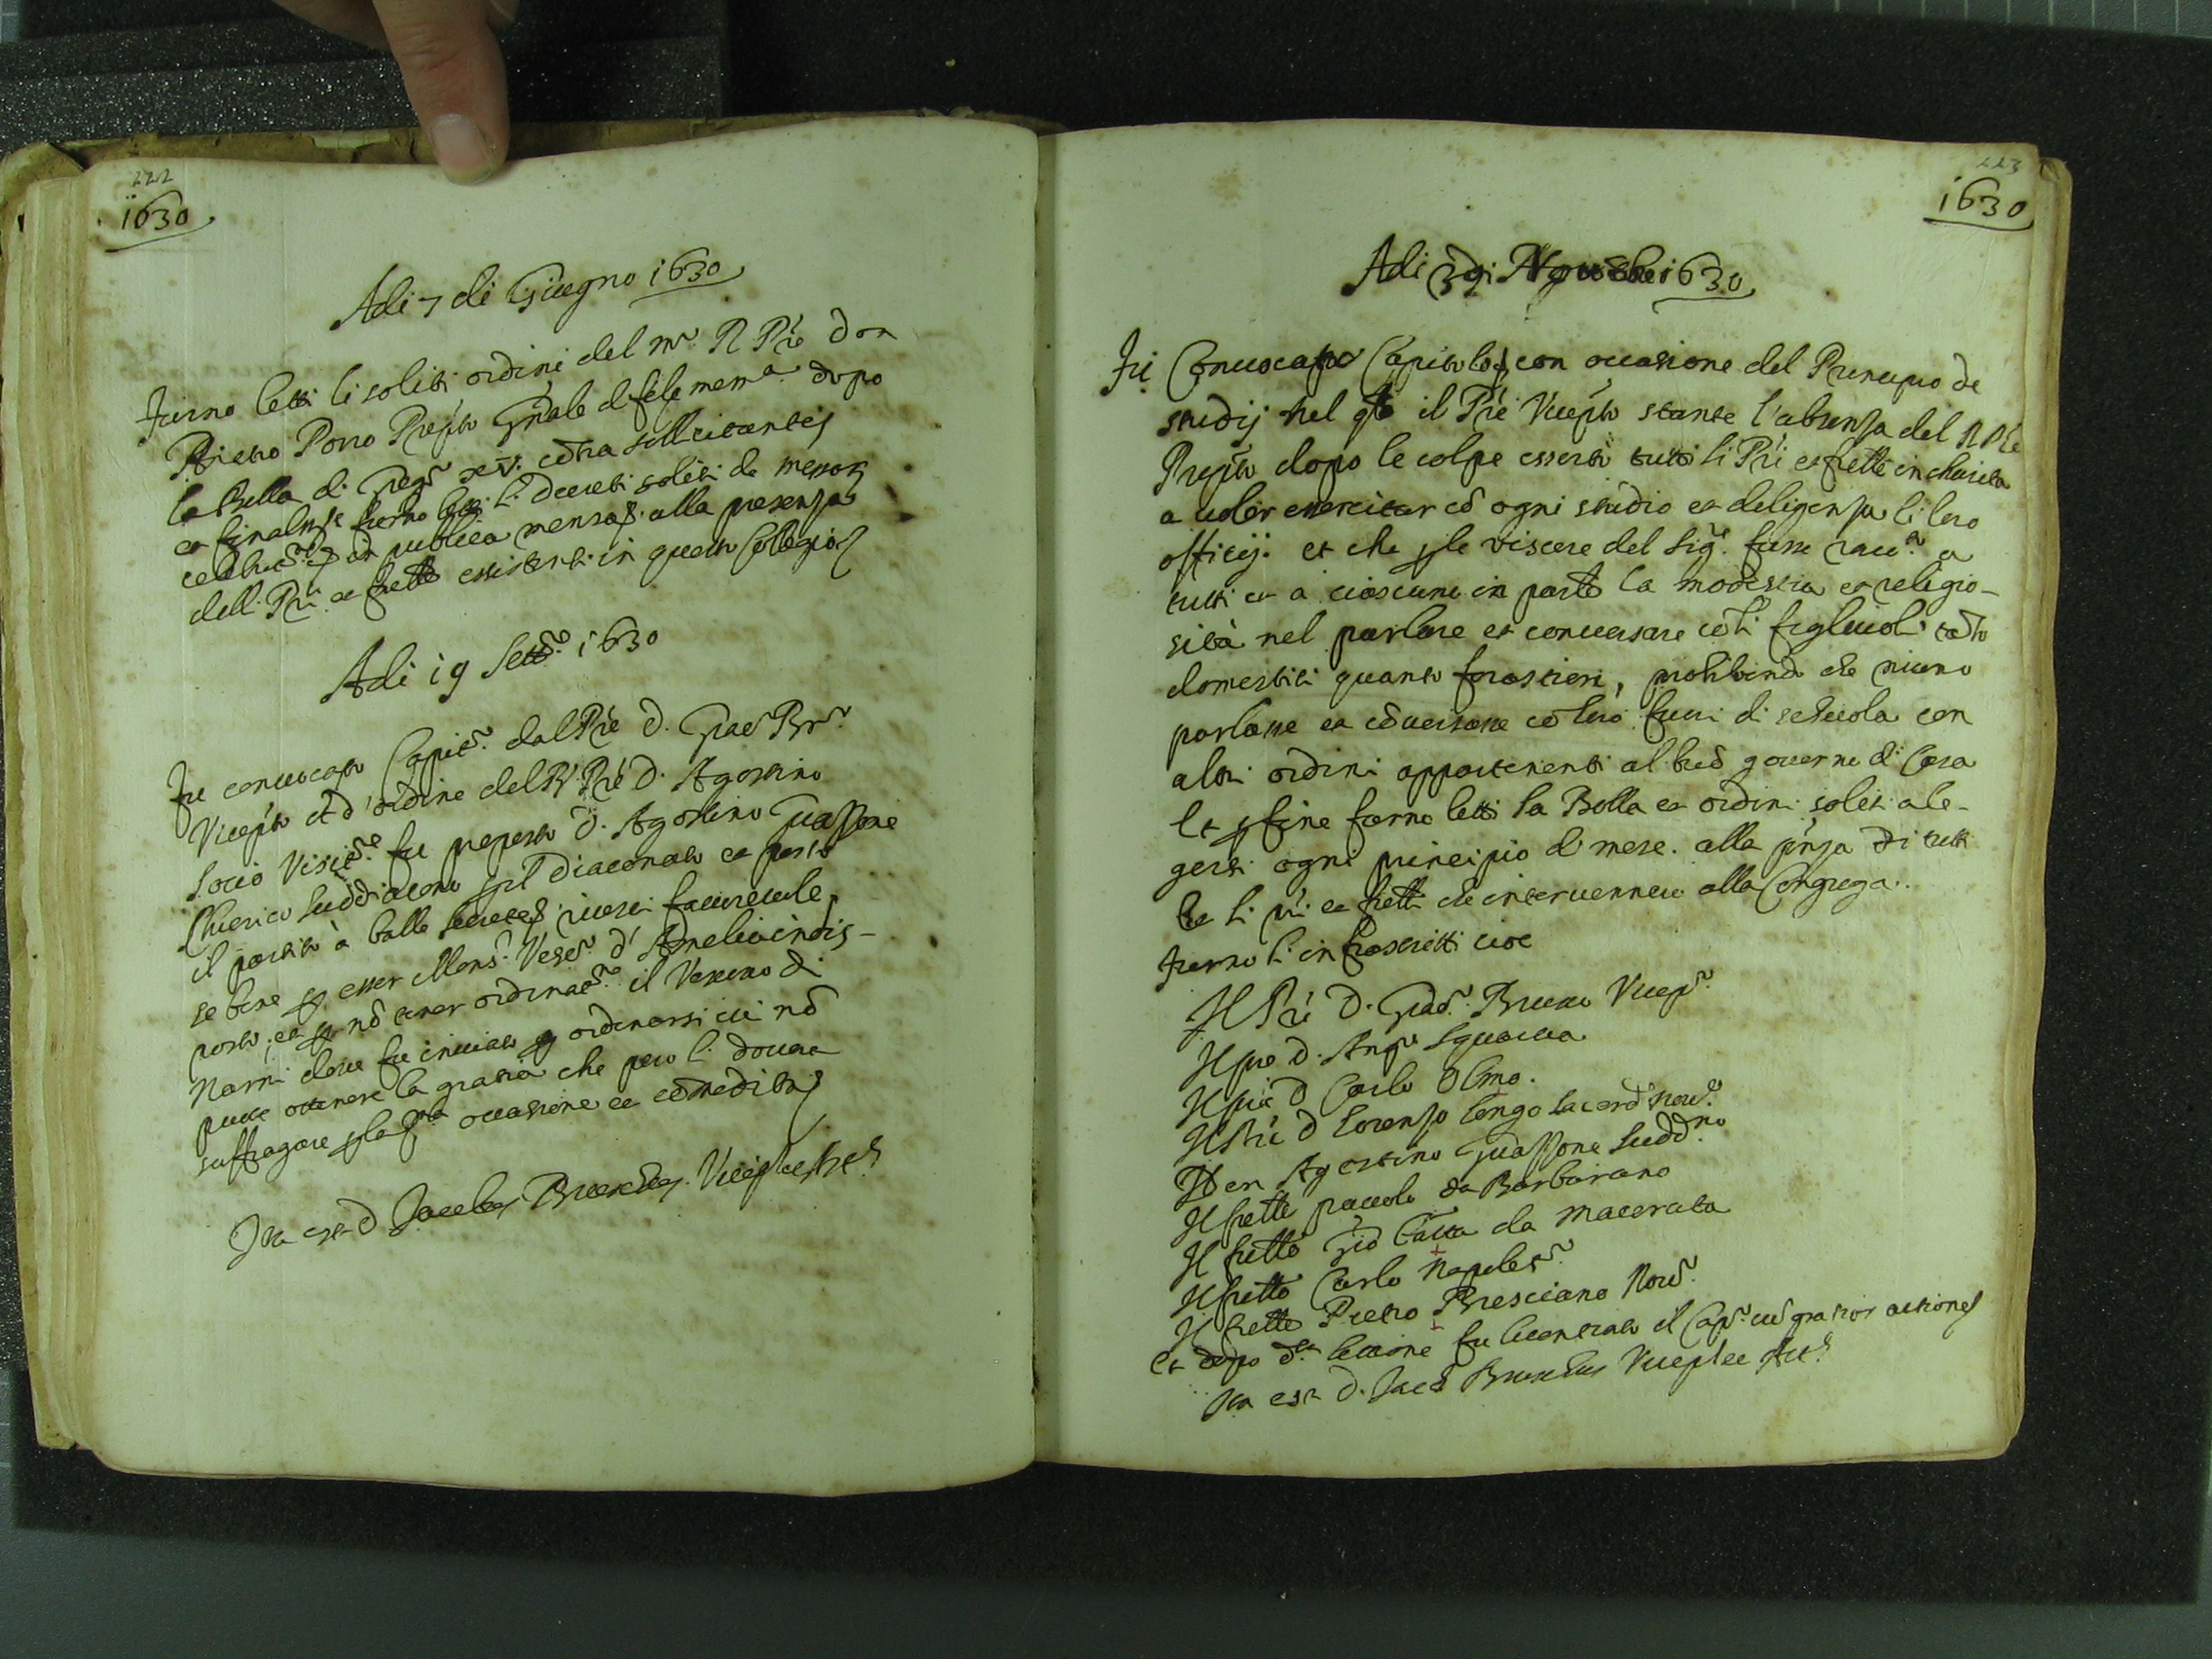 222
1630
Adi 7 di Giugno 1630
Furno letti li soliti ordini del m.r R Prē don
Pietro Porro Prep.to Gn̄ale d felc mem.a dopo
la Bolla di Greg.o xv. cōtra sollicitantes
et finalm.te furno letti li decreti soliti de
et in publica mensa alla presenza
delli Pri et frelli essistenti in questo Collegio
Adi 19 Setr̄e. 1630
Fu convocato Capit.o dal Prē D. Giac.o Br.
Vicep.to et d'ordine del R. Prē D. Agostino
Socio Visit.re fu proposto D. Agostino Guazzone
Chierico Suddiacono p il Diaconato et posto
il partito à balle secrete riuscì favorevole,
se bene p esser Mons.r Vesc.o d'Amelia indis-
posto, et p nō tener ordinat.ne il Vescovo di
Narni dove fu inviato p ordinarsi ivi nō
puote ottenere la gratia che però li dovea
suffragare p la p.a occasione et cōmodità
Ita est D Jacobus Vicep.tus
223
1630
Adi 3 di 1630
Fu Convocato Capitolo con occasione del Principio de
studij nel q.le il Prē Vicep.to stante l'absenza del R Prē
Prep.to dopo le colpe essortò tutti li Pri et frelli in charità
a voler essercitar cō ogni studio et deligenza li loro
officij. et che p le viscere del Sig.re fusse racc.ta a
tutti et a ciascuno in parte la modestia et religio-
sità nel parlare et conversare cō li figliuoli tāto
domestici quanto forastieri, prohibendo che niuno
parlasse et cōversasse cō loro fuori di schuola con
altri ordini appartenenti al buō governo di Casa
Et p fine furno letti la Bolla et ordini soliti a le-
gersi ogni principio d mese. alla pn̄za di tutti
Et li pri et frelli che intervennero alla Congrega.
furno li infrascritti cioe
Il Prē D. Giac.o Brucco Vicep.to
Il pre D. Ang.o Squarua
Il prē D Carlo Olmo.
Il Prē D Lorenzo Longo Sacerd.
Don Agostino Guazzone Sudd.no
Il frello paccolo da Barbarano
Il frello Giō Catta da Macerata
Il frello Carlo Napolet.o
Il frello Pietro Bresciano Nov.o
Et dopo d.a lettione fu licentiato il Cap.o cū gratiar actiones
Ita est D. Jac.s Vicep.tus